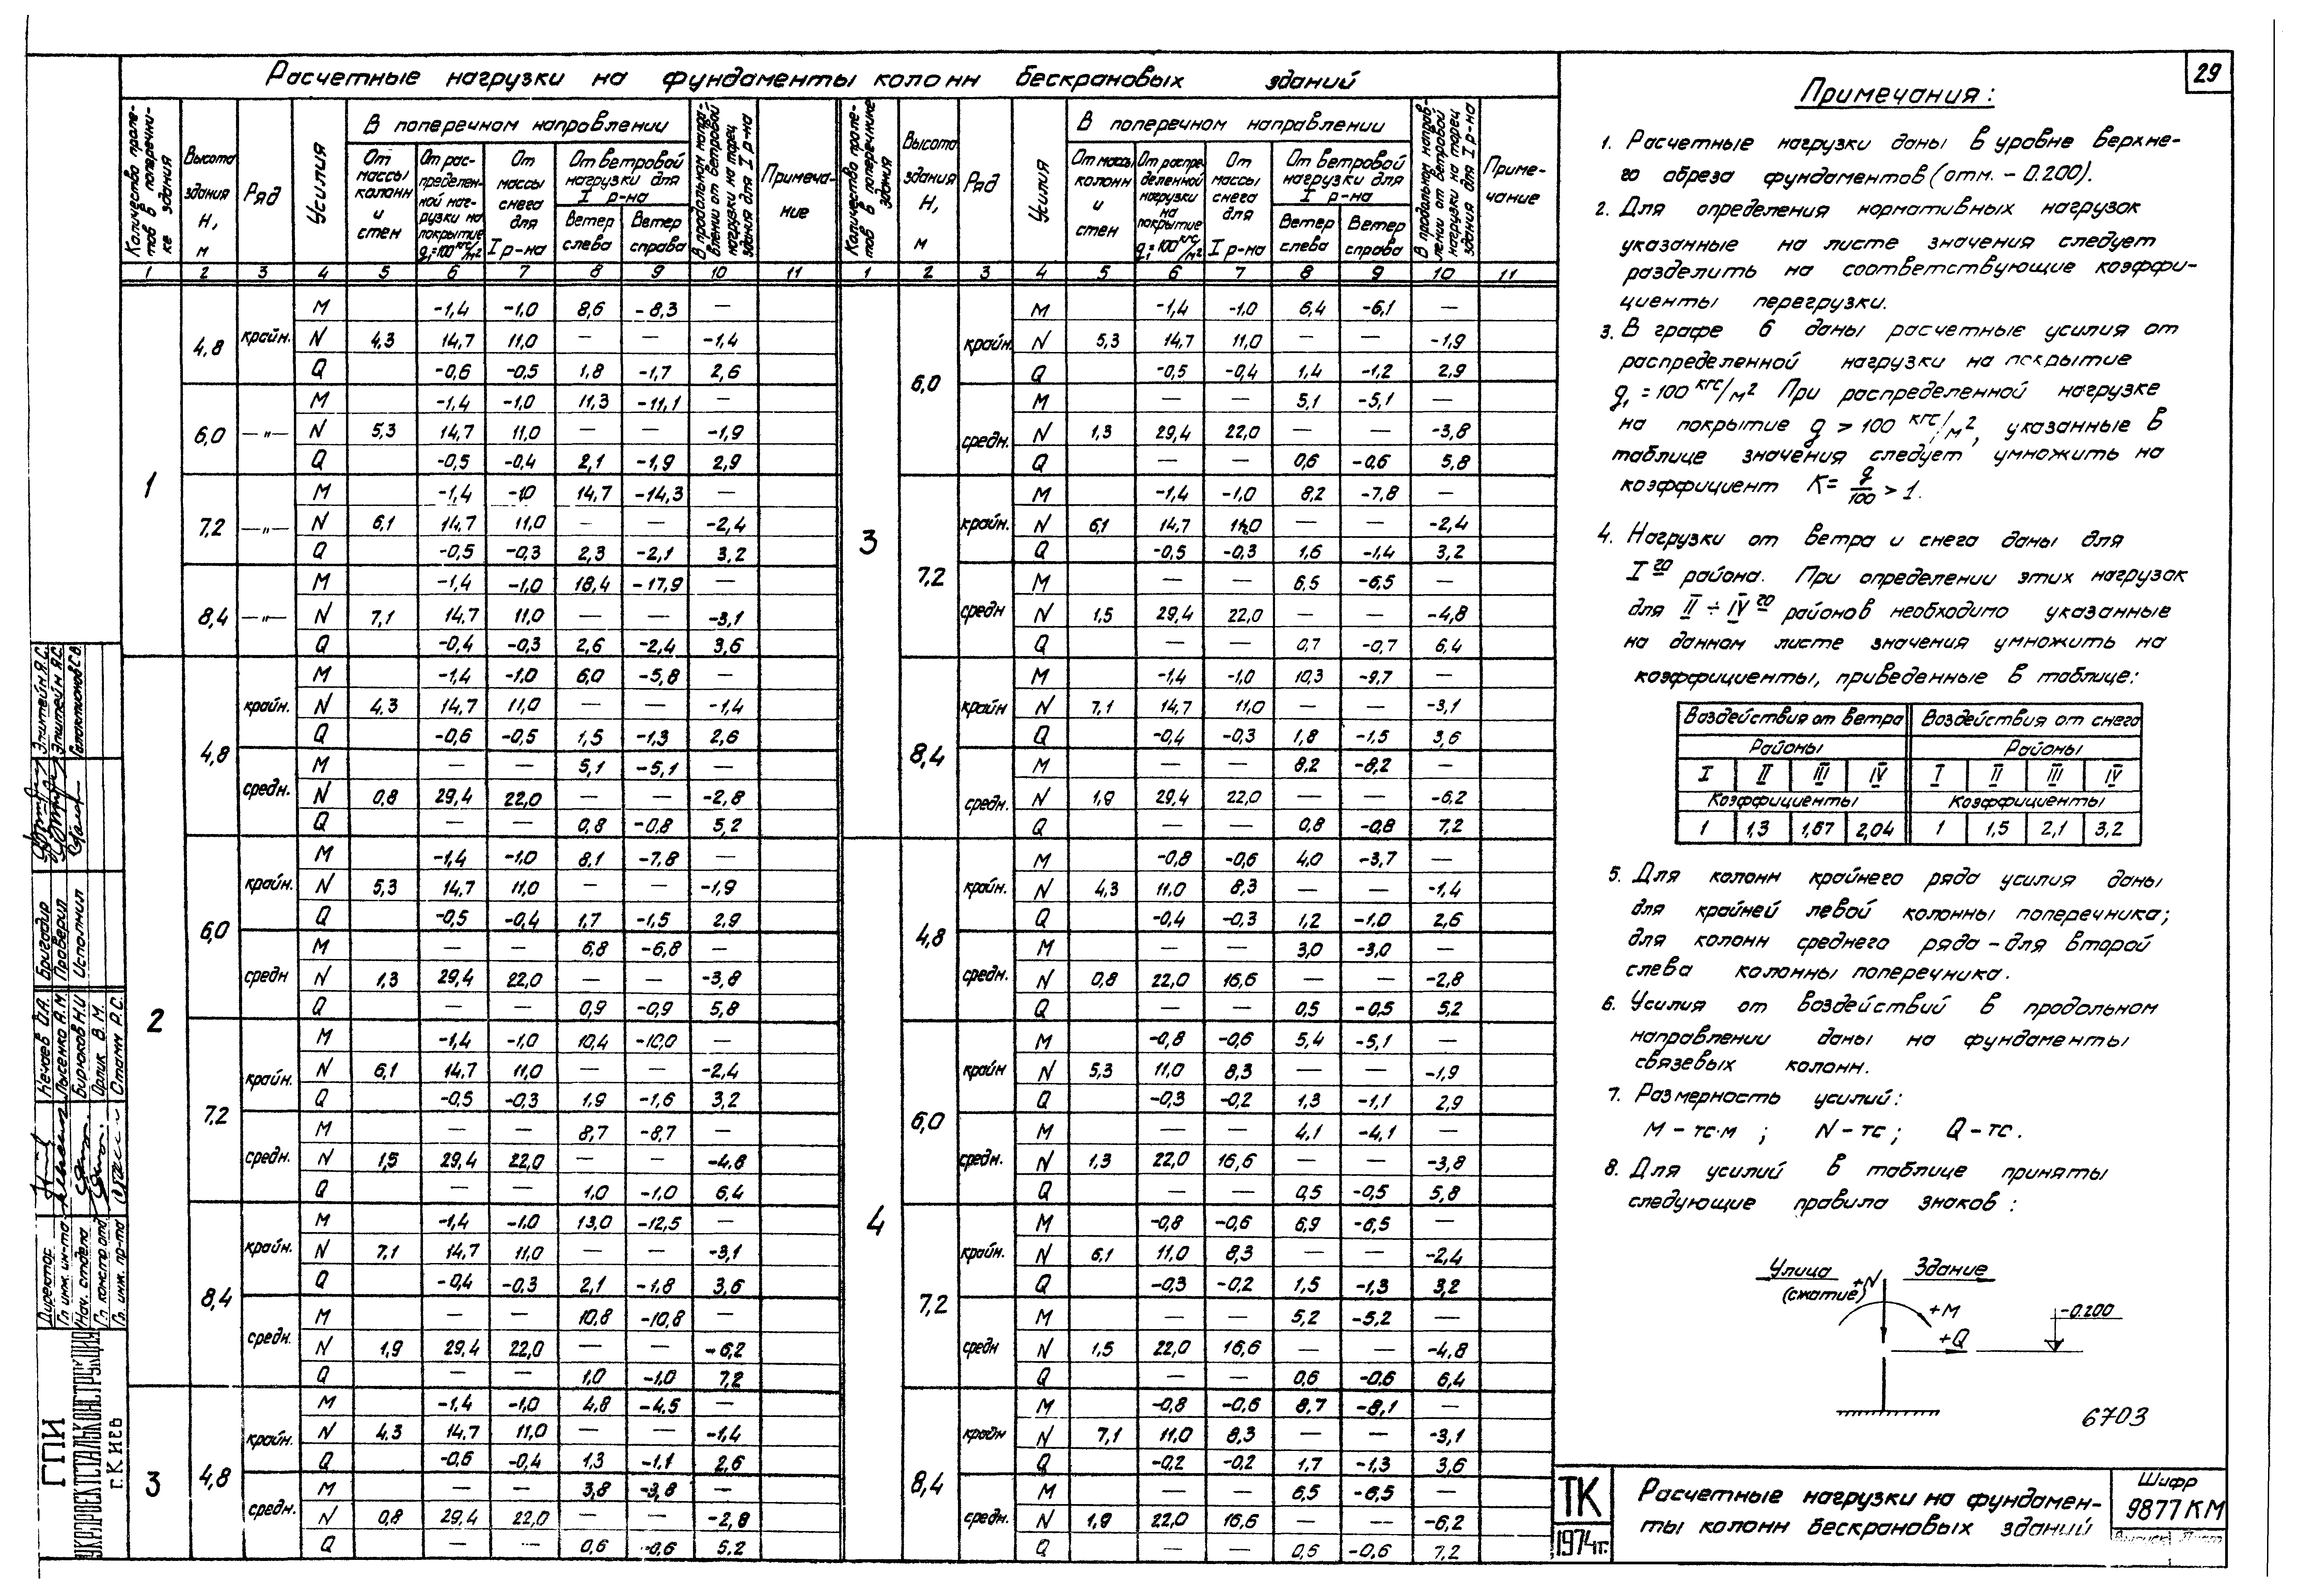 29
Расчетные нагрузки на фундаменты колонн бескрановых зданий
Количество пролетов в поперечнике здания | Высота здания Н, м | Ряд | Усилия | В поперечном направлении | В продольном направлении от ветровой нагрузки на торец здания для I р-на | Примечание
От массы колонн и стен | От распределенной нагрузки на покрытие q₁=100 кгс/м² | От массы снега для I р-на | От ветровой нагрузки для I р-на
Ветер слева | Ветер справа
1 2 3 4 5 6 7 8 9 10 11
1
4,8 крайн.
M -1,4 -1,0 8,6 -8,3 —
N 4,3 14,7 11,0 — — -1,4
Q -0,6 -0,5 1,8 -1,7 2,6
6,0 —"—
M -1,4 -1,0 11,3 -11,1 —
N 5,3 14,7 11,0 — — -1,9
Q -0,5 -0,4 2,1 -1,9 2,9
7,2 —"—
M -1,4 -10 14,7 -14,3 —
N 6,1 14,7 11,0 — — -2,4
Q -0,5 -0,3 2,3 -2,1 3,2
8,4 —"—
M -1,4 -1,0 18,4 -17,9 —
N 7,1 14,7 11,0 — — -3,1
Q -0,4 -0,3 2,6 -2,4 3,6
2
4,8 крайн.
M -1,4 -1,0 6,0 -5,8 —
N 4,3 14,7 11,0 — — -1,4
Q -0,6 -0,5 1,5 -1,3 2,6
средн.
M — — 5,1 -5,1 —
N 0,8 29,4 22,0 — — -2,8
Q — — 0,8 -0,8 5,2
6,0 крайн.
M -1,4 -1,0 8,1 -7,8 —
N 5,3 14,7 11,0 — — -1,9
Q -0,5 -0,4 1,7 -1,5 2,9
средн
M — — 6,8 -6,8 —
N 1,3 29,4 22,0 — — -3,8
Q — — 0,9 -0,9 5,8
7,2 крайн.
M -1,4 -1,0 10,4 -10,0 —
N 6,1 14,7 11,0 — — -2,4
Q -0,5 -0,3 1,9 -1,6 3,2
средн.
M — — 8,7 -8,7 —
N 1,5 29,4 22,0 — — -4,8
Q — — 1,0 -1,0 6,4
8,4 крайн.
M -1,4 -1,0 13,0 -12,5 —
N 7,1 14,7 11,0 — — -3,1
Q -0,4 -0,3 2,1 -1,8 3,6
средн.
M — — 10,8 -10,8 —
N 1,9 29,4 22,0 — — -6,2
Q — — 1,0 -1,0 7,2
3
4,8 крайн.
M -1,4 -1,0 4,8 -4,5 —
N 4,3 14,7 11,0 — — -1,4
Q -0,6 -0,4 1,3 -1,1 2,6
средн.
M — — 3,8 -3,8 —
N 0,8 29,4 22,0 — — -2,8
Q — — 0,6 -0,6 5,2
Количество пролетов в поперечнике здания | Высота здания Н, м | Ряд | Усилия | В поперечном направлении | В продольном направлении от ветровой нагрузки на торец здания для I р-на | Примечание
От массы колонн и стен | От распределенной нагрузки на покрытие q₁=100 кгс/м² | От массы снега для I р-на | От ветровой нагрузки для I р-на
Ветер слева | Ветер справа
1 2 3 4 5 6 7 8 9 10 11
3
6,0 крайн.
M -1,4 -1,0 6,4 -6,1 —
N 5,3 14,7 11,0 — — -1,9
Q -0,5 -0,4 1,4 -1,2 2,9
средн.
M 5,1 -5,1 —
N 1,3 29,4 22,0 — — -3,8
Q — — 0,6 -0,6 5,8
7,2 крайн.
M -1,4 -1,0 8,2 -7,8 —
N 6,1 14,7 11,0 — — -2,4
Q -0,5 -0,3 1,6 -1,4 3,2
средн
M — — 6,5 -6,5 —
N 1,5 29,4 22,0 — — -4,8
Q — — 0,7 -0,7 6,4
8,4 крайн
M -1,4 -1,0 10,3 -9,7 —
N 7,1 14,7 11,0 — — -3,1
Q -0,4 -0,3 1,8 -1,5 3,6
средн.
M — — 8,2 -8,2 —
N 1,9 29,4 22,0 — — -6,2
Q — — 0,8 -0,8 7,2
4
4,8 крайн.
M -0,8 -0,6 4,0 -3,7 —
N 4,3 11,0 8,3 — — -1,4
Q -0,4 -0,3 1,2 -1,0 2,6
средн.
M — — 3,0 -3,0 —
N 0,8 22,0 16,6 — — -2,8
Q — — 0,5 -0,5 5,2
6,0 крайн
M -0,8 -0,6 5,4 -5,1 —
N 5,3 11,0 8,3 — — -1,9
Q -0,3 -0,2 1,3 -1,1 2,9
средн.
M — — 4,1 -4,1 —
N 1,3 22,0 16,6 — — -3,8
Q — — 0,5 -0,5 5,8
7,2 крайн.
M -0,8 -0,6 6,9 -6,5 —
N 6,1 11,0 8,3 — — -2,4
Q -0,3 -0,2 1,5 -1,3 3,2
средн
M — — 5,2 -5,2 —
N 1,5 22,0 16,6 — — -4,8
Q — — 0,6 -0,6 6,4
8,4 крайн
M -0,8 -0,6 8,7 -8,1 —
N 7,1 11,0 8,3 — — -3,1
Q -0,2 -0,2 1,7 -1,3 3,6
средн.
M — — 6,5 -6,5 —
N 1,9 22,0 16,6 — — -6,2
Q — — 0,6 -0,6 7,2
Примечания:
1. Расчетные нагрузки даны в уровне верхне-
го обреза фундаментов (отм. -0.200).
2. Для определения нормативных нагрузок
указанные на листе значения следует
разделить на соответствующие коэффи-
циенты перегрузки.
3. В графе 6 даны расчетные усилия от
распределенной нагрузки на покрытие
q₁ = 100 кгс/м² При распределенной нагрузке
на покрытие q > 100 кгс/м², указанные в
таблице значения следует умножить на
коэффициент K = q/100 > 1.
4. Нагрузки от ветра и снега даны для
I го района. При определении этих нагрузок
для II ÷ IV го районов необходимо указанные
на данном листе значения умножить на
коэффициенты, приведенные в таблице:
Воздействия от ветра | Воздействия от снега
Районы | Районы
I II III IV | I II III IV
Коэффициенты | Коэффициенты
1 1,3 1,67 2,04 | 1 1,5 2,1 3,2
5. Для колонн крайнего ряда усилия даны
для крайней левой колонны поперечника;
для колонн среднего ряда - для второй
слева колонны поперечника.
6. Усилия от воздействий в продольном
направлении даны на фундаменты
связевых колонн.
7. Размерность усилий:
M - тс·м ; N - тс ; Q - тс.
8. Для усилий в таблице приняты
следующие правила знаков :
Улица +N Здание
(сжатие)
+M
-0.200
+Q
6703
ТК
1974г.
Расчетные нагрузки на фундамен-
ты колонн бескрановых зданий
Шифр
9877КМ
Выпуск Лист
ГПИ
УКРПРОЕКТСТАЛЬКОНСТРУКЦИЯ
г. КИЕВ
Директор Нечаев О.А.
Гл инж. ин-та Лысенко А.М
Нач. отдела Бирюков Н.И
Гл констр отд Орлик В. М.
Гл. инж. пр-та Стамм Р.С.
Бригадир Эпштейн Я.С.
Проверил Эпштейн Я.С.
Исполнил Галактионов С.В.